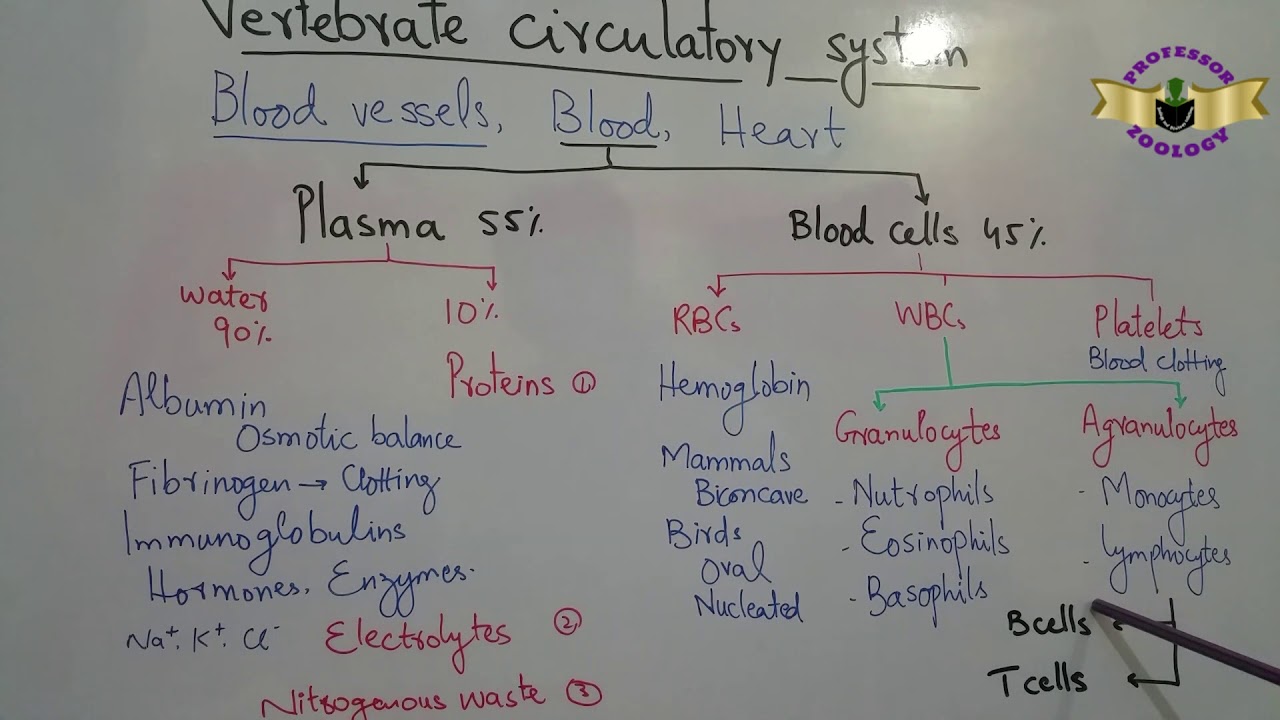 Vertebrate circulatory system
PROFESSOR
ZOOLOGY
Blood vessels, Blood, Heart
Plasma 55%
Blood cells 45%
Water
90%
10%
Proteins ①
Albumin
Osmotic balance
Fibrinogen → Clotting
Immunoglobulins
Hormones, Enzymes.
Na⁺. K⁺. Cl⁻ Electrolytes ②
Nitrogenous waste ③
RBCs
Hemoglobin
Mammals
Biconcave
Birds
Oval
Nucleated
WBCs
Granulocytes
- Nutrophils
- Eosinophils
- Basophils
Platelets
Blood clotting
Agranulocytes
- Monocytes
- Lymphocytes
B cells
T cells